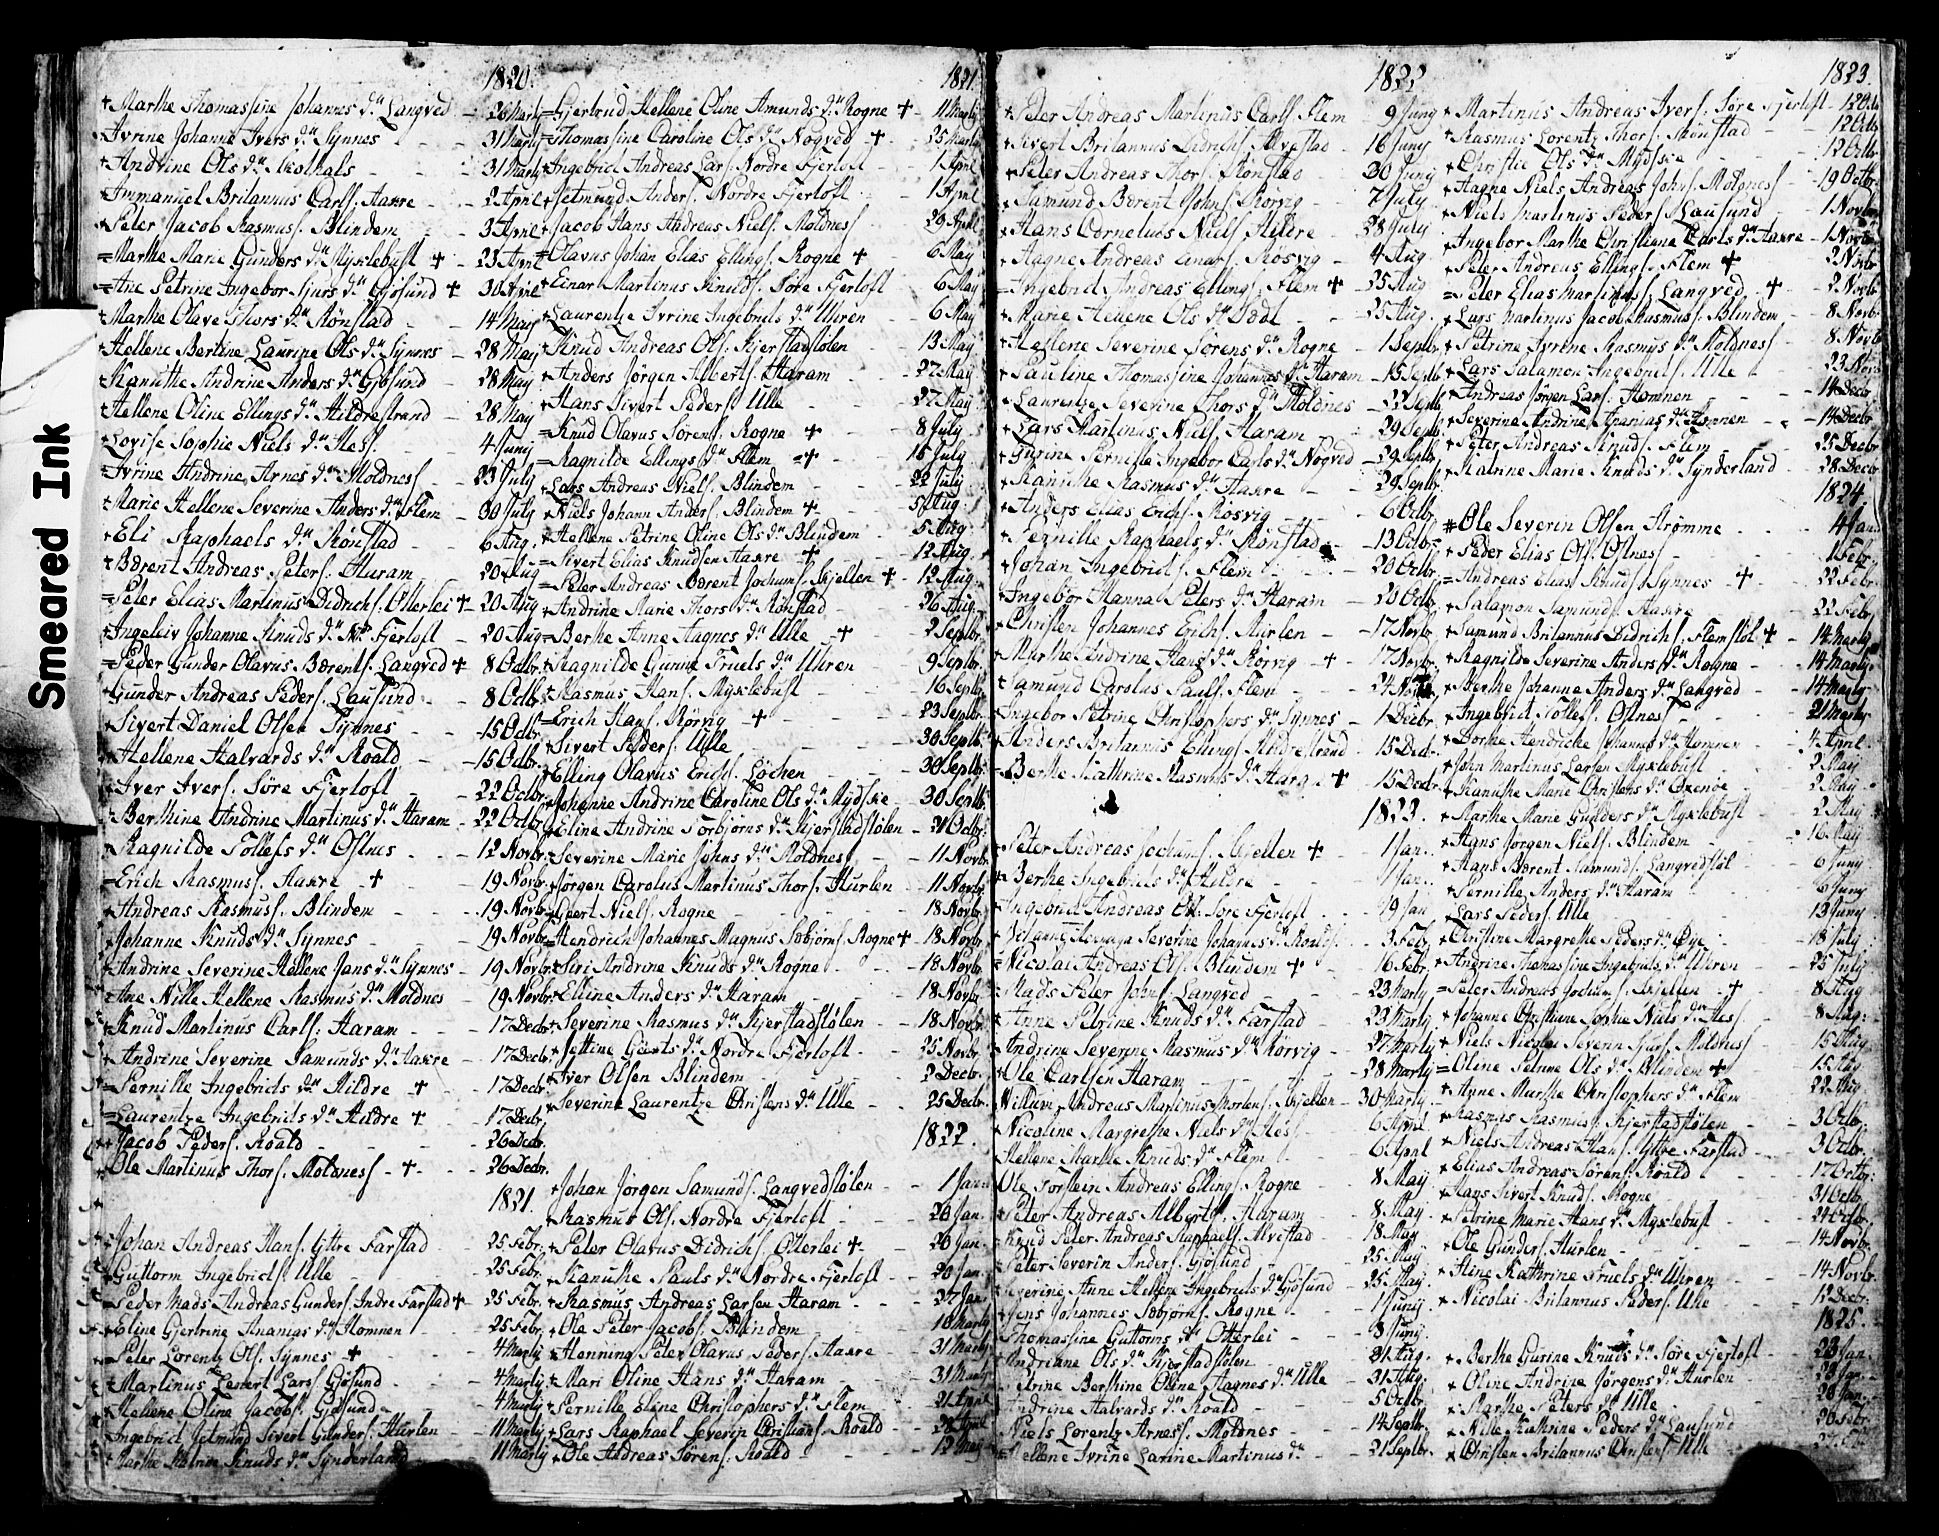 Smeared Ink
1820.
+ Marthe Thomassine Johannes d.r Langved - 26 Marty
Ivrine Johanne Ivers d.r Synnes - - 31 Marty
+ Andrine Ols d.r - - 31 Marty
+ Immanuel Britannus Carls. Haxre - - 2 April
+ Peter Jacob Rasmuss. Blindem - - 3 April
= Marthe Marie Gunders d.r Myxlebust + - 23 April
= Ane Petrine Ingebor Sjurs d.r Gjøsund + 30 April
+ Marthe Olave Thors d.r Rønstad - 14 May
+ Hellene Bertine Laurine Ols d.r Synnes - 28 May
+ Kanutte Andrine Anders d.r Gjøsund - 28 May
Hellene Oline Ellings d.r Hildrestrand - 28 May
+ Lovise Sophie Niels d.r Hess. - 4 Juny
+ Ivrine Andrine Arnes d.r Moldness - 23 July
+ Marie Hellene Severine Anders d.r Flem - 30 July
+ Eli Raphaels d.r Rønstad - 6 Aug.
+ Bærent Andreas Peters. Haram - 20 Aug
= Peter Elias Martinus Didrichs. Otterlei + - 20 Aug
+ Ingeleiv Johanne Knuds d.r Nr. Fjertoft - 20 Aug
= Peder Gunder Olavus Bærents. Langved + 8 Octbr.
+ Gunder Andreas Peders. Lausund - 8 Octb.
+ Sivert Daniel Olsen Synnes - 15 Octb.
+ Hellene Halvards d.r Roald - 15 Octbr.
+ Iver Ivers. Søre Fjertoft - 22 Octbr.
+ Berthine Andrine Martinus d.r Haram - 22 Octbr.
+ Ragnilde Tollefs d.r Ostnes - 12 Novbr.
= Erich Rasmuss. Haxre + - 19 Novbr.
+ Andreas Rasmuss. Blindem - 19 Novbr.
+ Johanne Knuds d.r Synnes - 19 Novbr.
+ Andrine Severine Hellene Jans d.r Synnes - 19 Novbr.
+ Ane Nille Hellene Rasmus d.r Moldnes - 19 Novbr.
+ Knud Martinus Carls. Haram - 17 Decbr.
+ Andrine Severine Samunds d.r Haxre - 17 Decbr.
= Pernille Ingebrigts d.r Hildre + - 17 Decbr.
= Laurentze Ingebrits d.r Hildre + - 17 Decbr.
+ Jacob Peders. Roald - 26 Decbr.
+ Ole Martinus Thors. Moldness - + - 26 Decbr.
1821.
Johan Andreas Hans. Yttre Farstad 25 Febr.
+ Guttorm Ingebrigts. Ulle - 25 Febr.
= Peder Mads Andreas Gunders. Indre Farstad + 25 Febr.
+ Eline Gjertrine Ananias d.r Homnen - 25 Febr.
= Peter Lorentz Ols. Synnes + - 4 Marty
+ Martinus Lars. Gjøsund - 4 Marty
+ Hellene Oline Jacobs. Gjøsund - 4 Marty
+ Ingebrigt Jetmund Sivert Gunders. Hurlen - 11 Marty
+ Marthe Knuds d.r Synderland 11 Marty
1821.
= Gjertrud Hellene Oline Amunds d.r Rogne + - 11 Marty
= Thomassine Caroline Ols d.r Nogved + - 25 Marty
+ Ingebrigt Andreas Lars. Nordre Fjertoft - 1 April
+ Jetmund Anders. Nordre Fjertoft - 1 April
+ Jacob Hans Andreas Niels. Moldnes - 29 April
= Olavus Johan Elias Ellings. Rogne + - 6 May
+ Einar Martinus Knuds. Søre Fjertoft - 6 May
+ Laurentze Ivrine Ingebrits d.r Uhren - 6 May
+ Knud Andreas Ols. Kjerstadstølen - 13 May
+ Anders Jørgen Alberts. Haram - 27 May
+ Hans Sivert Peders. Ulle - 27 May
= Knud Olavus Sørens. Rogne + - 8 July
= Ragnilde Ellings d.r Flem = + - 15 July
+ Lars Andreas Niels. Blindem - 22 July
= Niels Johann Anders. Blindem + - 5 Aug.
+ Hellene Petrine Oline Ols d.r Blindem - 5 Aug.
= Sivert Elias Knudsen Haxre + - 12 Aug.
= Peter Andreas Bærent Jochums. Skjellen + - 12 Aug.
+ Andrine Marie Thors d.r Rønstad - 26 Aug.
= Berthe Anne Aagnes d.r Ulle - + - 2 Septbr.
+ Ragnilde Gurine Truels d.r Uhren - 9 Septbr.
+ Rasmus Hans. Myxlebust - 16 Septb.
= Erich Hans. Rørvig - + - 23 Septbr.
+ Sivert Peders. Ulle - 30 Septb.
+ Elling Olavus Erichs. Løchen - 30 Septb.
+ Johanne Andrine Caroline Ols d.r Mydsxe - 30 Septb.
+ Eline Andrine Torbjørns d.r Kjerstadstølen - 21 Octbr.
+ Severine Marie Johns d.r Moldnes - 11 Novbr.
+ Jørgen Carolus Martinus Thors. Hurlen - 11 Novbr.
+ Geert Niels. Rogne - 18 Novbr.
= Hendrich Johannes Magnus Sæbjørns. Rogne + - 18 Novbr.
+ Siri Andrine Knuds d.r Rogne - 18 Novbr.
+ Elline Anders d.r Haram - 18 Novbr.
+ Severine Rasmus d.r Kjerstadstølen - 18 Novbr.
+ Jettine Geerts d.r Nordre Fjertoft - 25 Novbr.
+ Iver Olsen Blindem - 2 Decbr.
+ Severine Laurentze Christens d.r Ulle - 25 Decbr.
1822
+ Johan Jørgen Samunds. Langvedstølen - 1 Jan.
+ Rasmus Ols. Nordre Fjertoft - 20 Jan.
+ Peter Olavus Didrichs. Otterlei + - 20 Jan.
+ Kanutte Pauls d.r Nordre Fjertoft - 20 Jan.
+ Rasmus Andreas Larsen Haram - 27 Jan.
+ Ole Peter Jacobs. Blindem - 10 Marty
+ Henning Peter Olavus Peders. Haxre - 31 Marty
+ Mari Oline Hans d.r Haram - 31 Marty
+ Pernille Eline Christophers d.r Flem - 21 April
+ Lars Raphael Severin Christians. Roald - 28 April
+ Ole Andreas Sørens. Roald - 12 May
1822
+ Peter Andreas Martinus Carls. Flem 9 Juny
+ Sivert Britannus Didrichs. Alvestad - 16 Juny
+ Peter Andreas Thors. Rønstad - 30 Juny
+ Samund Bærent Johns. Rørvig - 7 July
+ Hans Cornelius Niels. Hildre - 28 July
+ Aagne Andreas Einars. Røsvig - 4 Aug.
= Ingebrigt Andreas Ellings. Flem + - 25 Aug
+ Marie Hellene Ols d.r - 25 Aug.
+ Hellene Severine Sørens d.r Rogne - 1 Septb.
+ Pauline Thomassine Johannes d.r Haram - 15 Septb.
+ Laurentze Severine Thors d.r Moldnes - 22 Septb.
+ Lars Martinus Niels. Haram - 29 Septb.
+ Gurine Pernille Ingebor Carls d.r Nogved - 29 Septbr.
+ Kanutte Rasmus d.r Haxre - 29 Septbr.
+ Anders Elias Erichs. Røsvig - 6 Octbr.
+ Pernille Raphaels d.r Rønstad - 13 Octbr.
+ Johan Ingebrigts. Flem - 20 Octbr.
+ Ingebor Hanna Peters d.r Haram - 20 Octbr.
+ Christen Johannes Erichs. Hurlen - 17 Novbr.
+ Marthe Andrine Hans d.r Rørvig - + - 17 Novbr.
+ Samund Carolus Pauls. Flem - 24 Novbr.
Ingebor Petrine Christophers d.r Synnes - 1 Decbr.
+ Anders Britannus Ellings. Hildrestrand - 15 Decb.
= Berthe Kathrine Rasmus d.r + 15 Decbr.
1823.
Peter Andreas Jochums. Skjellen + - 1 Jan.
+ Berthe Ingebrits d.r Hildre - 1 Jan.
Ingebrigt Andreas Ols. Søre Fjertoft - 19 Jan
Severine Johannes d.r Roald - 3 Febr.
= Nicolai Andreas Ols. Blindem + - 16 Febr.
+ Mads Peter Johns. Langved - 23 Marty
+ Anne Petrine Knuds d.r Farstad - 23 Marty
Andrine Severine Rasmus d.r Rørvig - 27 Marty
+ Ole Carlsen Haram - 28 Marty
Willum Andreas Martinus Mortens. Skjellen - 30 Marty
+ Nicoline Margrethe Niels d.r Hess - 6 April
Hellene Marthe Knuds d.r Flem - 6 April
Ole Torstein Andreas Ellings. Rogne - 8 May
+ Peter Andreas Alberts. Haram - 8 May.
Knud Peter Andreas Raphaels. Alvestad - 18 May
+ Peter Severin Anders. Gjøsund - 25 May
Severine Anne Hellene Ingebrits d.r Gjøsund - 25 May.
+ Jens Johannes Sæbjørns. Rogne - 1 Juny
Thomassine Guttorms d.r Otterlei - 8 Juny.
Andriane Ols d.r Kjerstadstølen - 21 Aug.
Petrine Berthine Oline Aagnes d.r Ulle - 31 Aug.
Andrine Halvards d.r Roald - 5 Octbr.
Niels Lorentz Arness. Moldnes - 14 Septbr.
Hellene Ivrine Larine Martinus d.r - 21 Septbr.
1823
+ Martinus Andreas Ivers. Søre Fjertoft - 12 Octb.
+ Rasmus Lorentz Thors. Rønstad - 12 Octb.
+ Christie Ols d.r Mydsxe - 12 Octbr.
+ Aagne Niels Andreas Johns. Moldness - 19 Octbr.
+ Niels Martinus Peders. Lausund - 1 Novbr.
+ Ingebor Marthe Christiane Carls d.r Haxre - 1 Novbr.
+ Peter Andreas Ellings. Flem + - 2 Novbr
= Peter Elias Martinus. Langved - + - 2 Novbr
+ Lars Martinus Jacob Rasmuss. Blindem - 8 Novbr.
+ Petrine Ivrine Rasmus d.r Moldness - 8 Novbr.
+ Lars Salamon Ingebrits. Ulle - 23 Nov.
+ Andreas Jørgen Lars. Homnen - 14 Decbr.
+ Severine Andrine Ananias d.r Homnen - 14 Decbr.
+ Peter Andreas Knuds. Flem - 25 Decbr.
+ Katrine Marie Knuds d.r Synderland - 28 Decbr.
1824.
+ Ole Severin Olsen Strømme - 4 Jan.
+ Peder Elias Ols. Ostnes - 1 Febr
= Andreas Elias Knuds. Synnes - + - 22 Febr.
+ Salamon Samunds. Haxre - 22 Febr.
+ Samund Britannus Didrichs. Flemstøl + - 14 Marty
+ Ragnilde Severine Anders d.r Rogne - 14 Marty
+ Berthe Johanne Anders d.r Langved - 14 Marty
+ Ingebrigt Tollefs. Ostness - 21 Marty
+ Dorthe Hendricke Johannes d.r Homnen - 4 April
+ John Martinus Larsen Myxlebust - 2 May
+ Kanutte Marie Christens d.r Oxenøe - 2 May
+ Marthe Marie Gunders d.r Myxlebust - 2 May
+ Hans Jørgen Niels. Blindem - 16 May
+ Hans Bærent Samunds. Langvedstøl - 6 Juny
+ Pernille Anders d.r Haram - 6 Juny
+ Lars Peders. Ulle - 13 Juny
+ Christine Margrethe Peders d.r - 18 July
+ Andrine Thomassine Ingebrits d.r Uhren - 25 July
= Peter Andreas Jochums. Skjellen - + - 8 Aug
+ Johanne Christiane Sophie Niels d.r Hess. - 8 Aug.
+ Niels Nicolai Severin Sjurs. Moldness - 15 Aug
= Oline Petrine Ols d.r Blindem + - 15 Aug
+ Agne Marthe Christophers d.r Flem - 22 Aug.
+ Rasmus Rasmuss. Kjerstadstølen - 3 Octbr.
+ Niels Andreas Hans. Yttre Farstad - 3 Octbr.
+ Elias Andreas Sørens. Roald - 17 Octbr.
+ Hans Sivert Knuds. Rogne - 31 Octbr.
+ Petrine Marie Hans d.r Myxlebust - 24 Octbr.
+ Ole Gunders. Hurlen - 14 Novbr.
+ Kathrine Truels d.r Uhren - 14 Novbr.
+ Nicolai Britannus Peders. Ulle - 12 Decbr.
1825.
+ Berthe Gurine Knuds d.r Søre Fjertoft - 23 Jan.
+ Oline Andrine Jørgens d.r Hurlen - 23 Jan.
+ Marthe Peters d.r Ulle - 23 Jan.
+ Nille Kathrine Peders d.r Lausund - 20 Febr.
+ Christen Britannus Christens. Ulle